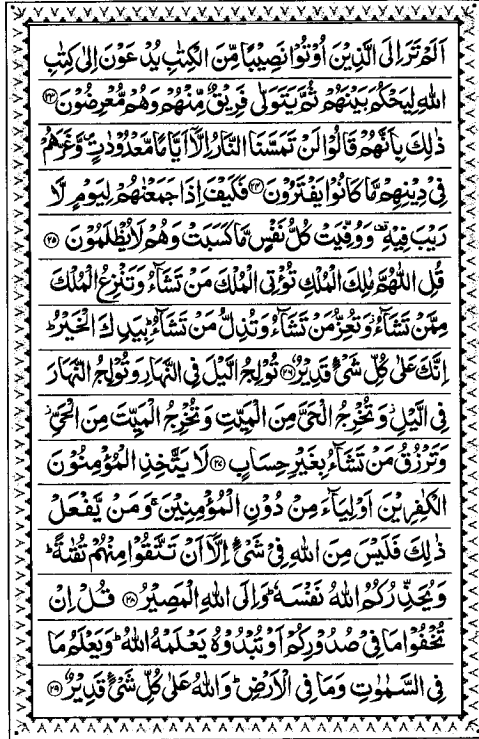 اَلَمْ تَرَ اِلَى الَّذِيْنَ اُوْتُوْا نَصِيْبًا مِّنَ الْكِتٰبِ يُدْعَوْنَ اِلٰى كِتٰبِ
اللّٰهِ لِيَحْكُمَ بَيْنَهُمْ ثُمَّ يَتَوَلّٰى فَرِيْقٌ مِّنْهُمْ وَهُمْ مُّعْرِضُوْنَ ۝۲۳
ذٰلِكَ بِاَنَّهُمْ قَالُوْا لَنْ تَمَسَّنَا النَّارُ اِلَّاۤ اَيَّامًا مَّعْدُوْدٰتٍ ۪ وَغَرَّهُمْ
فِيْ دِيْنِهِمْ مَّا كَانُوْا يَفْتَرُوْنَ ۝۲۴ فَكَيْفَ اِذَا جَمَعْنٰهُمْ لِيَوْمٍ لَّا
رَيْبَ فِيْهِ ۣ وَوُفِّيَتْ كُلُّ نَفْسٍ مَّا كَسَبَتْ وَهُمْ لَا يُظْلَمُوْنَ ۝۲۵
قُلِ اللّٰهُمَّ مٰلِكَ الْمُلْكِ تُؤْتِى الْمُلْكَ مَنْ تَشَآءُ وَتَنْزِعُ الْمُلْكَ
مِمَّنْ تَشَآءُ ؗ وَتُعِزُّ مَنْ تَشَآءُ وَتُذِلُّ مَنْ تَشَآءُ ؕ بِيَدِكَ الْخَيْرُ ؕ
اِنَّكَ عَلٰى كُلِّ شَيْءٍ قَدِيْرٌ ۝۲۶ تُوْلِجُ الَّيْلَ فِى النَّهَارِ وَتُوْلِجُ النَّهَارَ
فِى الَّيْلِ ؗ وَتُخْرِجُ الْحَيَّ مِنَ الْمَيِّتِ وَتُخْرِجُ الْمَيِّتَ مِنَ الْحَيِّ ؗ
وَتَرْزُقُ مَنْ تَشَآءُ بِغَيْرِ حِسَابٍ ۝۲۷ لَا يَتَّخِذِ الْمُؤْمِنُوْنَ
الْكٰفِرِيْنَ اَوْلِيَآءَ مِنْ دُوْنِ الْمُؤْمِنِيْنَ ۚ وَمَنْ يَّفْعَلْ
ذٰلِكَ فَلَيْسَ مِنَ اللّٰهِ فِيْ شَيْءٍ اِلَّاۤ اَنْ تَتَّقُوْا مِنْهُمْ تُقٰىةً ؕ
وَيُحَذِّرُكُمُ اللّٰهُ نَفْسَهٗ ؕ وَاِلَى اللّٰهِ الْمَصِيْرُ ۝۲۸ قُلْ اِنْ
تُخْفُوْا مَا فِيْ صُدُوْرِكُمْ اَوْ تُبْدُوْهُ يَعْلَمْهُ اللّٰهُ ؕ وَيَعْلَمُ مَا
فِى السَّمٰوٰتِ وَمَا فِى الْاَرْضِ ؕ وَاللّٰهُ عَلٰى كُلِّ شَيْءٍ قَدِيْرٌ ۝۲۹